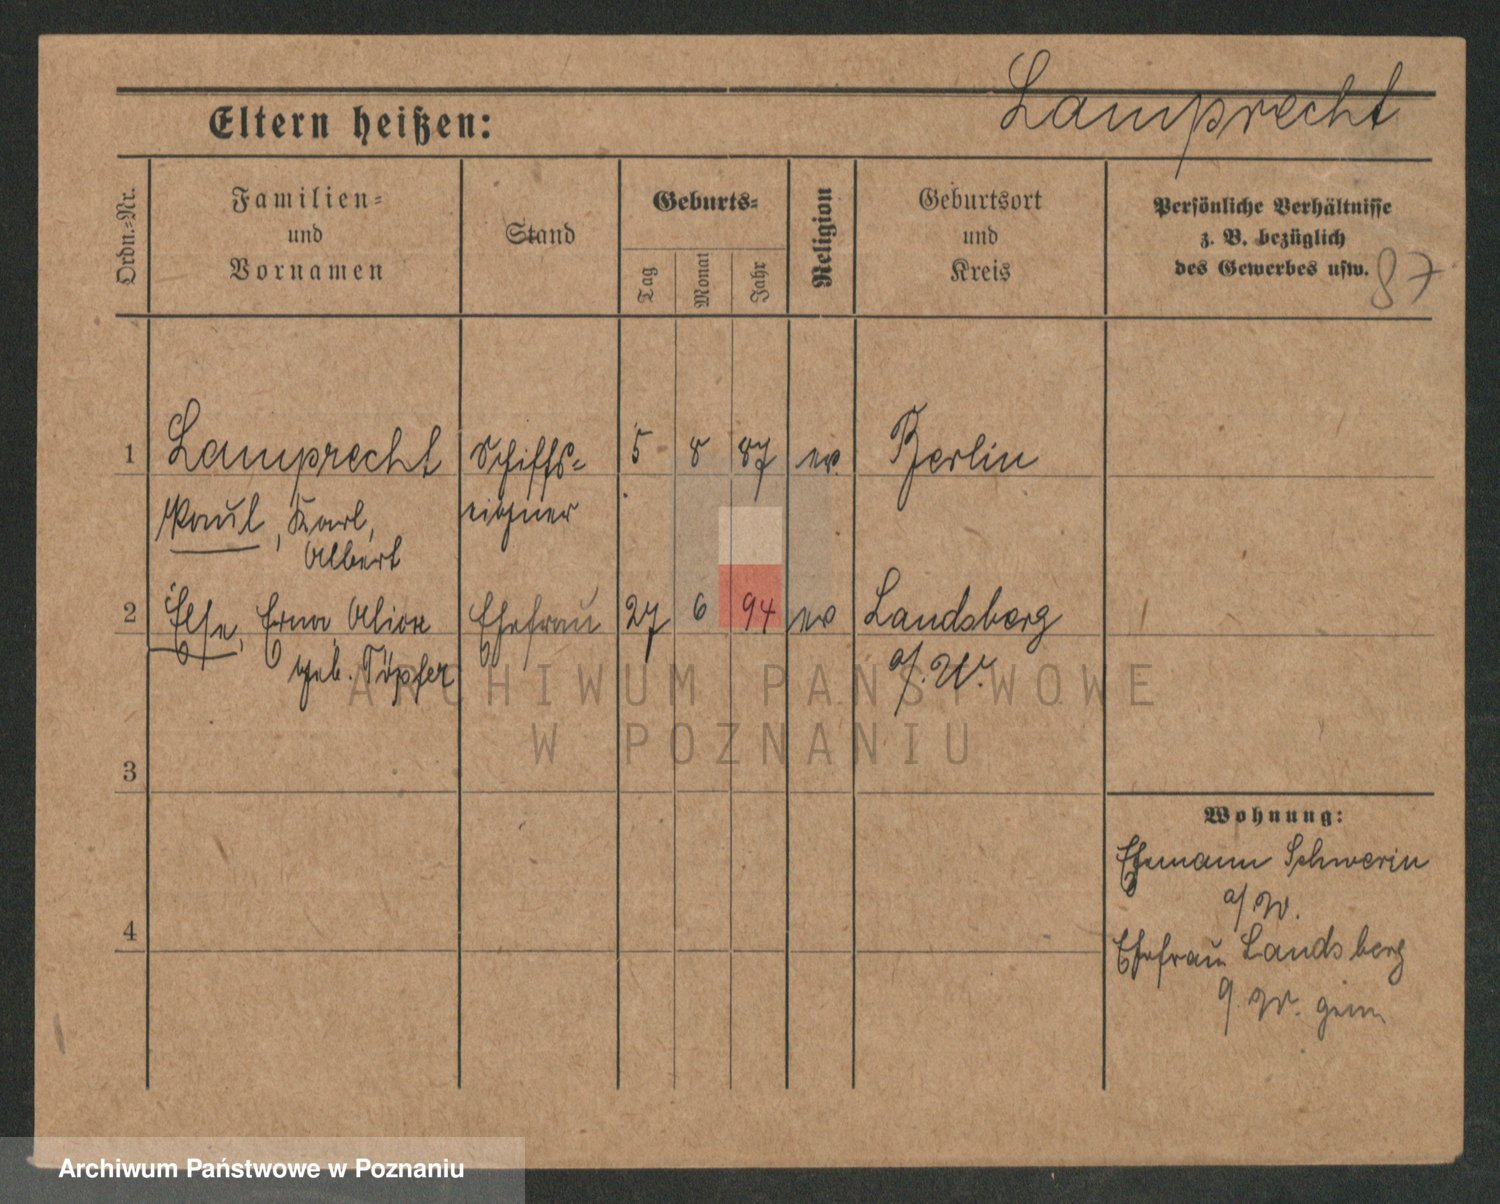 Lamprecht
Eltern heißen:
Ordn.-Nr.
Familien-
und
Vornamen
Stand
Geburts-
Tag
Monat
Jahr
Religion
Geburtsort
und
Kreis
Persönliche Verhältnisse
z. B. bezüglich
des Gewerbes usw.
87
1 Lamprecht Schiffs- 5 8 87 ev Berlin
Paul, Karl, eigner
Albert
2 Else, Erna Ehefrau 27 6 94 ev Landsberg
geb. Töpfer a/. W.
ARCHIWUM PAŃSTWOWE
W POZNANIU
3
Wohnung:
Ehemann Schwerin
a/W.
4
Ehefrau Landsberg
a/. W.
Archiwum Państwowe w Poznaniu